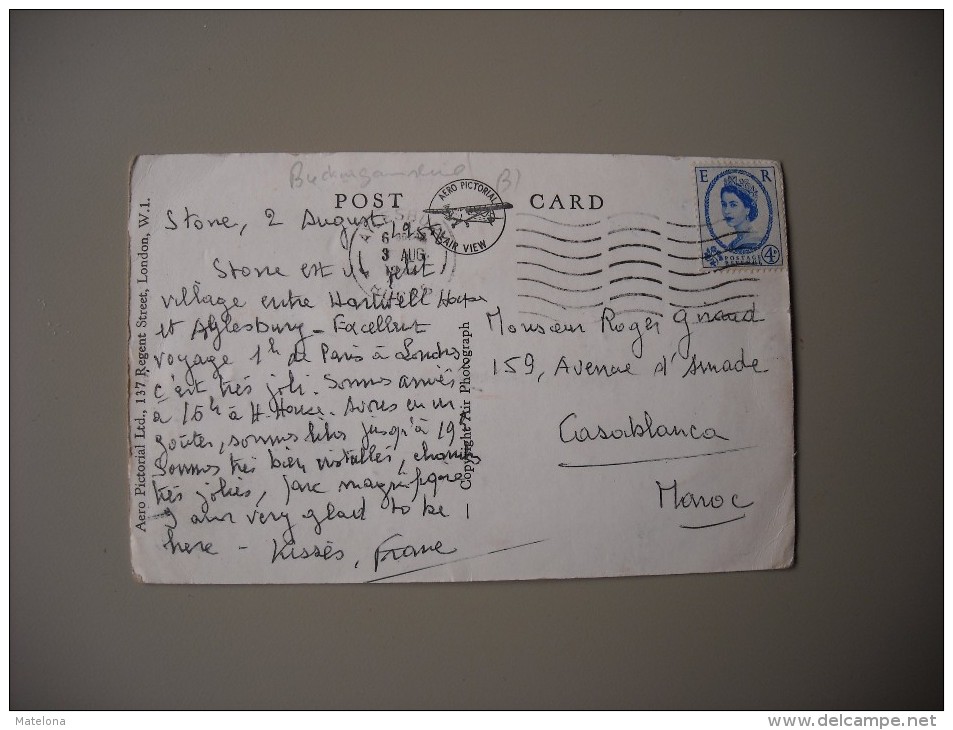 Buckinghamshire
POST CARD
AERO PICTORIAL
AIR VIEW
E R
POSTAGE REVENUE
4D
3 AUG
Stone, 2 August 195
Stone est un petit
village entre Hartwell House
et Aylesbury - Excellent
voyage 1h de Paris à Londres
c'est très joli. Sommes arrivés
à 16h à H. House. Avons eu un
goûter, sommes libres jusqu'à 19h
Sommes très bien installés, chambres
très jolies, parc magnifique
I am very glad to be
here - Kisses, France
Monsieur Roger Giraud
159, Avenue d'Amade
Casablanca
Maroc
Aero Pictorial Ltd., 137 Regent Street, London, W.1.
Copyright Air Photograph
Matelona
www.delcampe.net